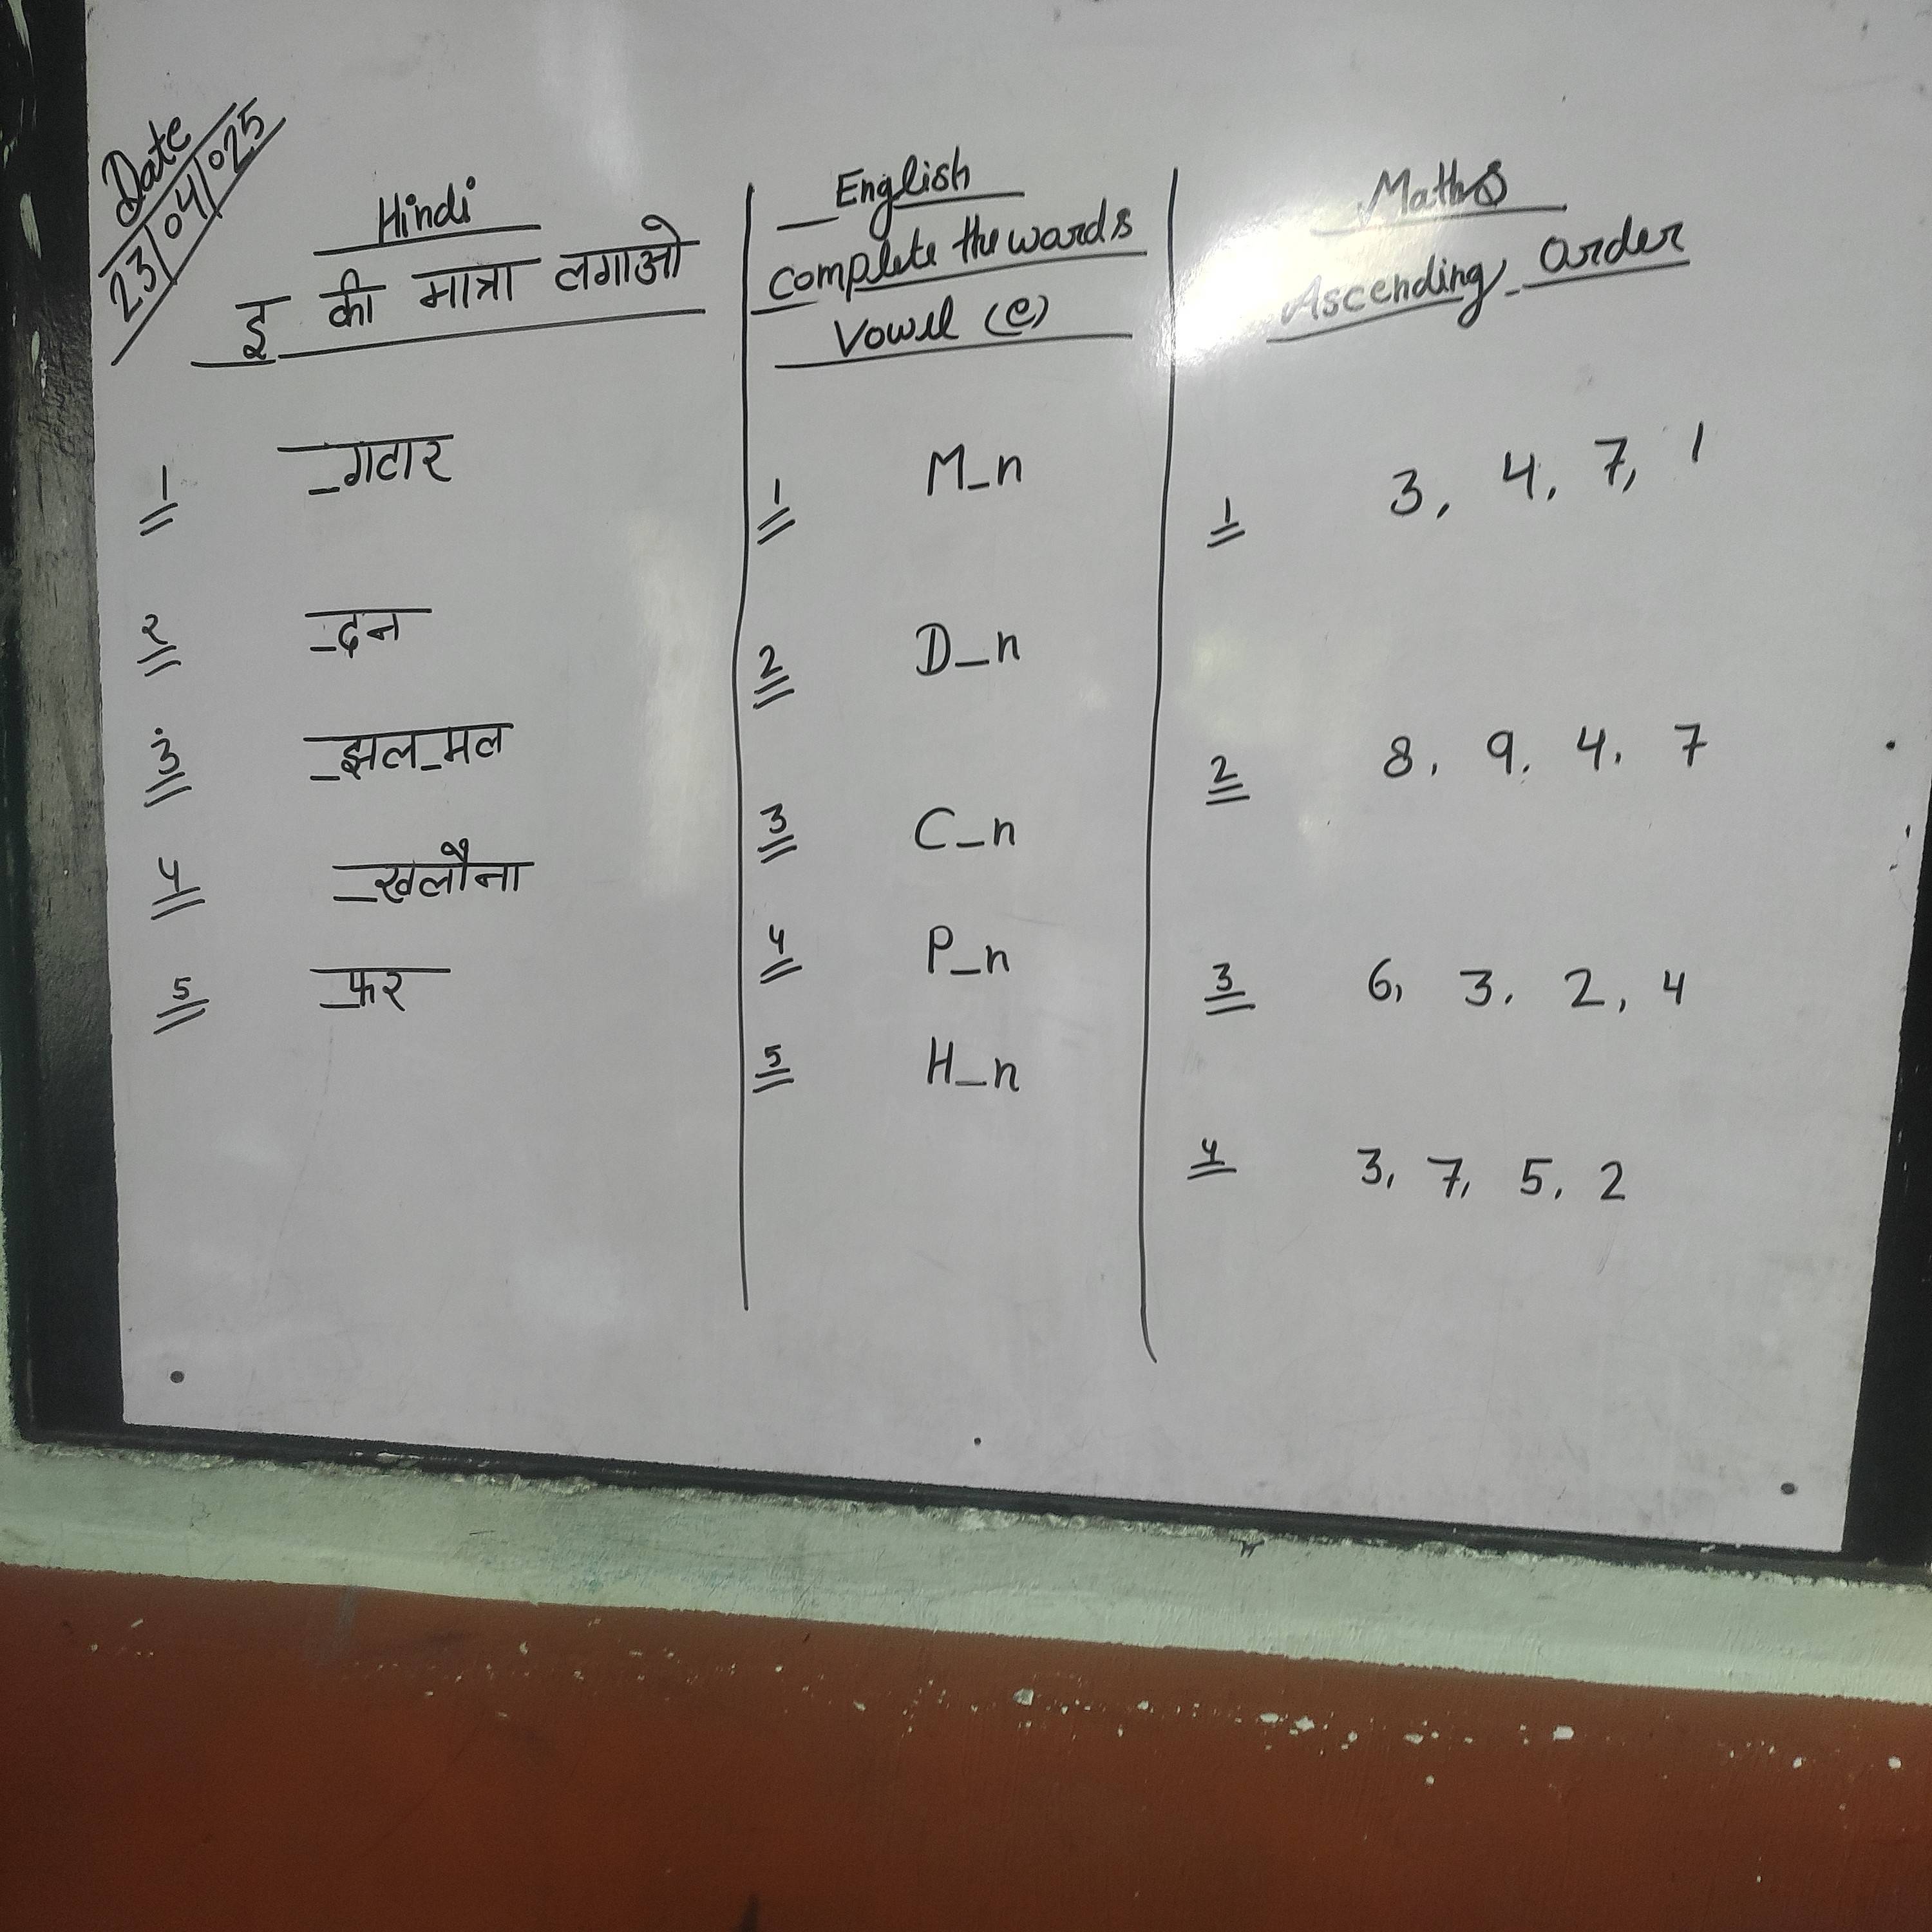 Date
23/04/025
Hindi
इ की मात्रा लगाओ
1 _गटार
2 _दन
3 _झल_मल
4 _खलौना
5 _फर
English
Complete the words
Vowel (e)
1 M_n
2 D_n
3 C_n
4 P_n
5 H_n
Maths
Ascending order
1 3, 4, 7, 1
2 8, 9, 4, 7
3 6, 3, 2, 4
4 3, 7, 5, 2